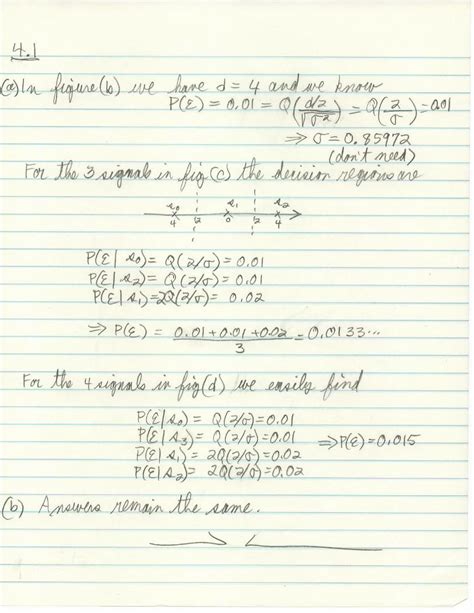 4.1
(a) In figure (b) we have d = 4 and we know
P(ε) = 0.01 = Q( (d/2) / √σ² ) = Q( 2/σ ) = 0.01
⇒ σ = 0.85972
(don't need)
For the 3 signals in fig (c) the decision regions are
s₀ s₁ s₂
4 2 0 2 4
P(ε| s₀) = Q(2/σ) = 0.01
P(ε| s₂) = Q(2/σ) = 0.01
P(ε| s₁) = 2Q(2/σ) = 0.02
⇒ P(ε) = (0.01 + 0.01 + 0.02) / 3 = 0.0133...
For the 4 signals in fig (d) we easily find
P(ε| s₀) = Q(2/σ) = 0.01
P(ε| s₃) = Q(2/σ) = 0.01 ⇒ P(ε) = 0.015
P(ε| s₁) = 2Q(2/σ) = 0.02
P(ε| s₂) = 2Q(2/σ) = 0.02
(b) Answers remain the same.